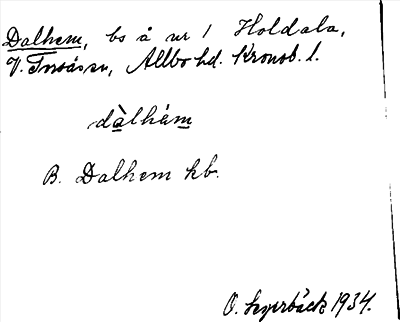 Dalhem, bs å nr 1 Holdala,
V. Torsåsen, Allbo hd. Kronob. l.
dàlhém
B. Dalhem kb.
O. 1934.